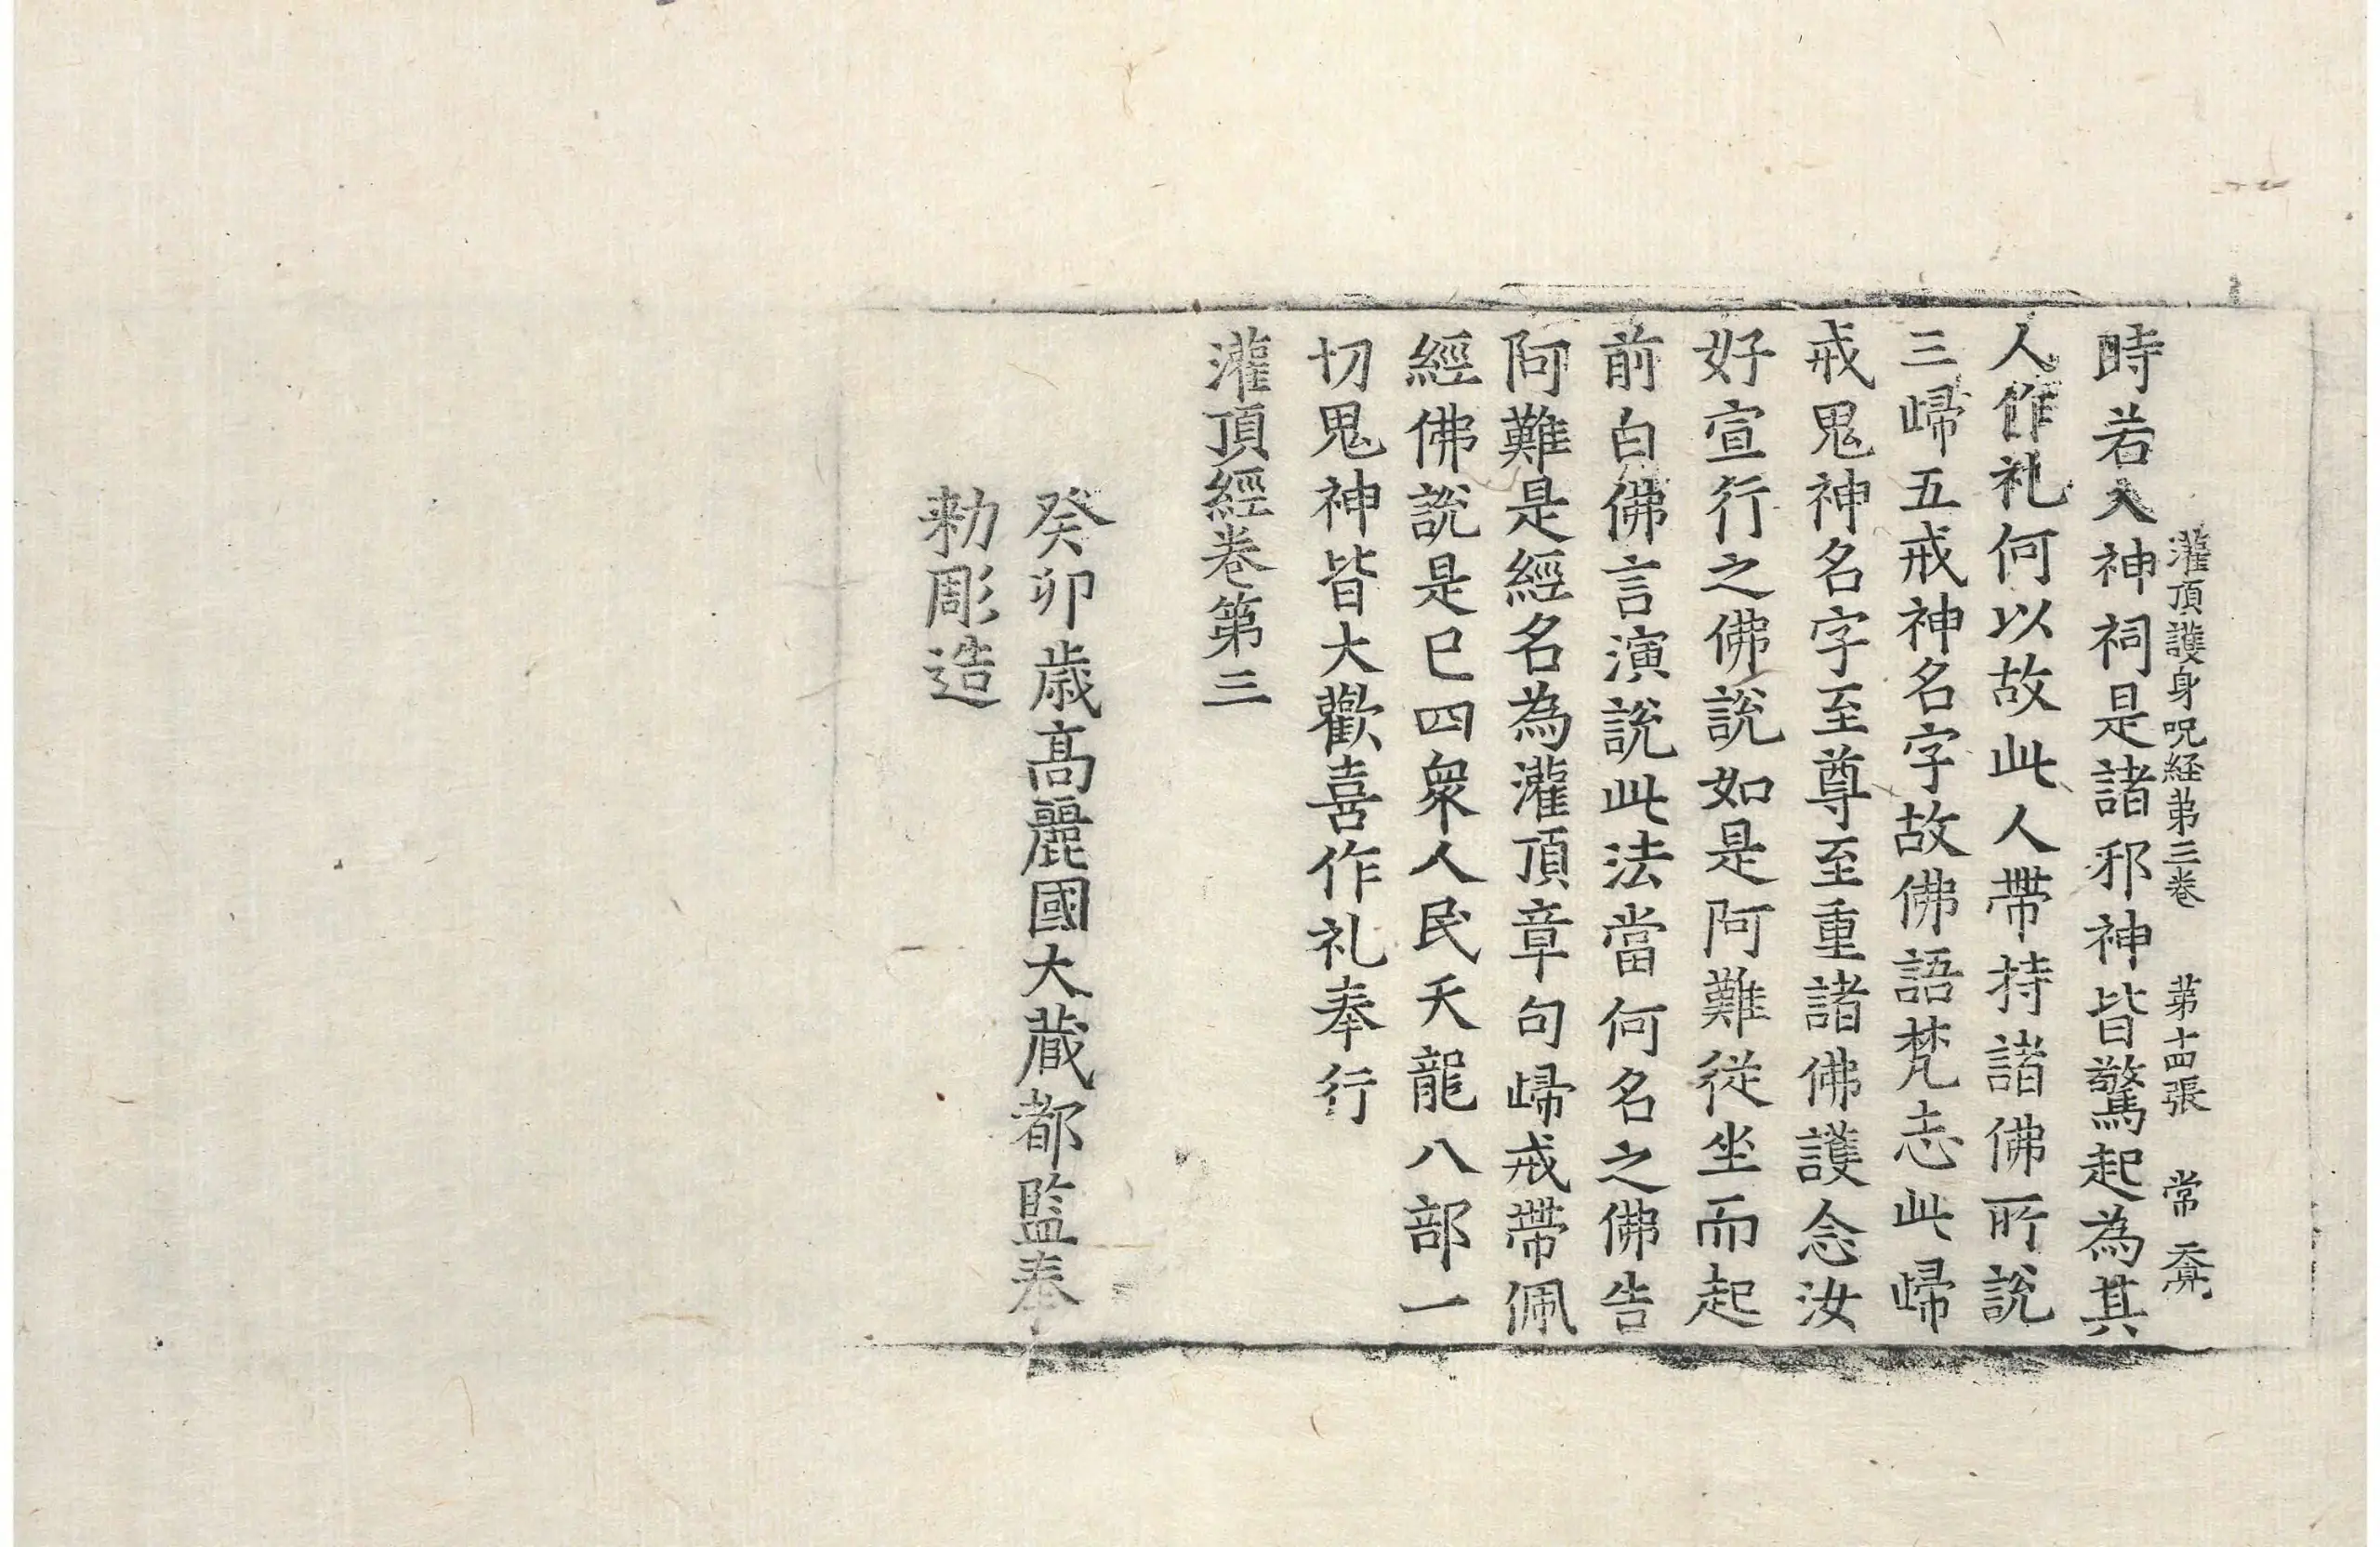 灌頂護身呪経第三巻 第十四張 常
時若入神祠是諸邪神皆驚起為其
人作礼何以故此人帶持諸佛所說
三歸五戒神名字故佛語梵志此歸
戒鬼神名字至尊至重諸佛護念汝
好宣行之佛說如是阿難從坐而起
前白佛言演說此法當何名之佛告
阿難是經名為灌頂章句歸戒帶佩
經佛說是已四衆人民天龍八部一
切鬼神皆大歡喜作礼奉行
灌頂經卷第三
癸卯歲高麗國大藏都監奉
勅彫造